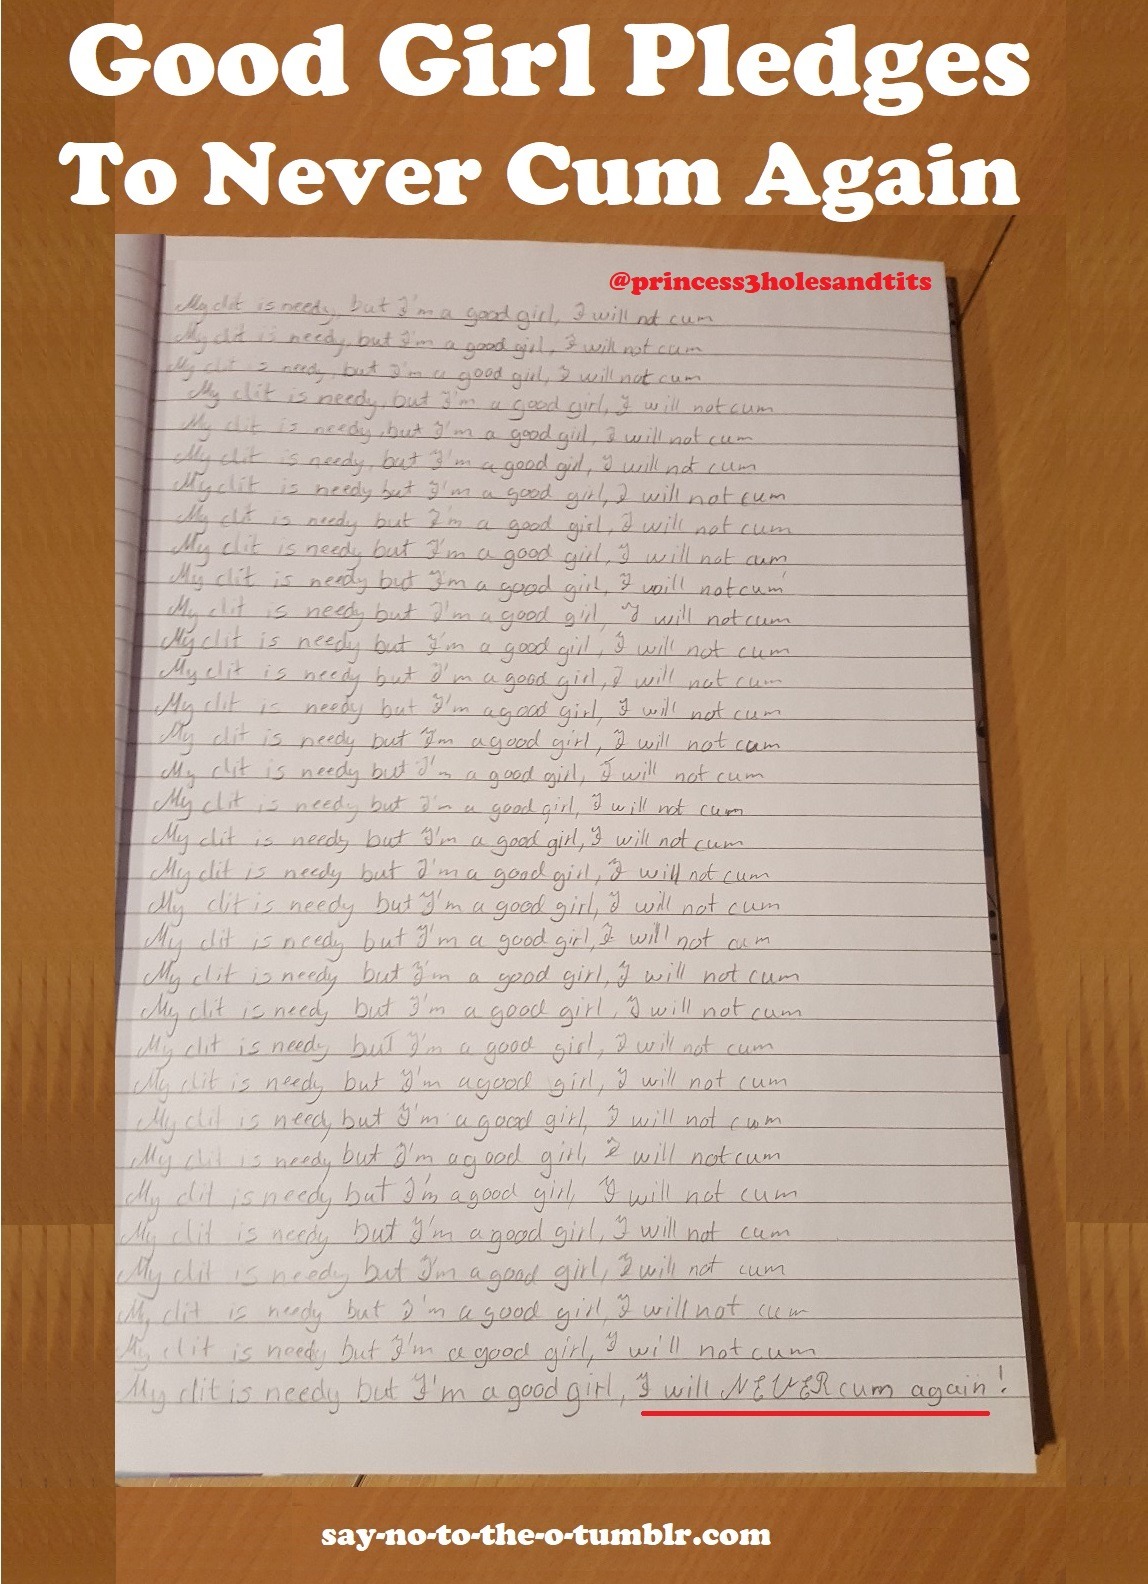 Good Girl Pledges
To Never Cum Again
@princess3holesandtits
My clit is needy, but I'm a good girl, I will not cum
My clit is needy, but I'm a good girl, I will not cum
My clit is needy, but I'm a good girl, I will not cum
My clit is needy, but I'm a good girl, I will not cum
My clit is needy, but I'm a good girl, I will not cum
My clit is needy, but I'm a good girl, I will not cum
My clit is needy but I'm a good girl, I will not cum
My clit is needy but I'm a good girl, I will not cum
My clit is needy but I'm a good girl, I will not cum
My clit is needy but I'm a good girl, I will not cum
My clit is needy but I'm a good girl, I will not cum
My clit is needy but I'm a good girl, I will not cum
My clit is needy but I'm a good girl, I will not cum
My clit is needy but I'm a good girl, I will not cum
My clit is needy but I'm a good girl, I will not cum
My clit is needy but I'm a good girl, I will not cum
My clit is needy but I'm a good girl, I will not cum
My clit is needy but I'm a good girl, I will not cum
My clit is needy but I'm a good girl, I will not cum
My clit is needy but I'm a good girl, I will not cum
My clit is needy but I'm a good girl, I will not cum
My clit is needy but I'm a good girl, I will not cum
My clit is needy but I'm a good girl, I will not cum
My clit is needy but I'm a good girl, I will not cum
My clit is needy but I'm a good girl, I will not cum
My clit is needy but I'm a good girl, I will not cum
My clit is needy but I'm a good girl, I will not cum
My clit is needy but I'm a good girl, I will not cum
My clit is needy but I'm a good girl, I will not cum
My clit is needy but I'm a good girl, I will not cum
My clit is needy but I'm a good girl, I will not cum
My clit is needy but I'm a good girl, I will not cum
My clit is needy but I'm a good girl, I will NEVER cum again!
say-no-to-the-o-tumblr.com